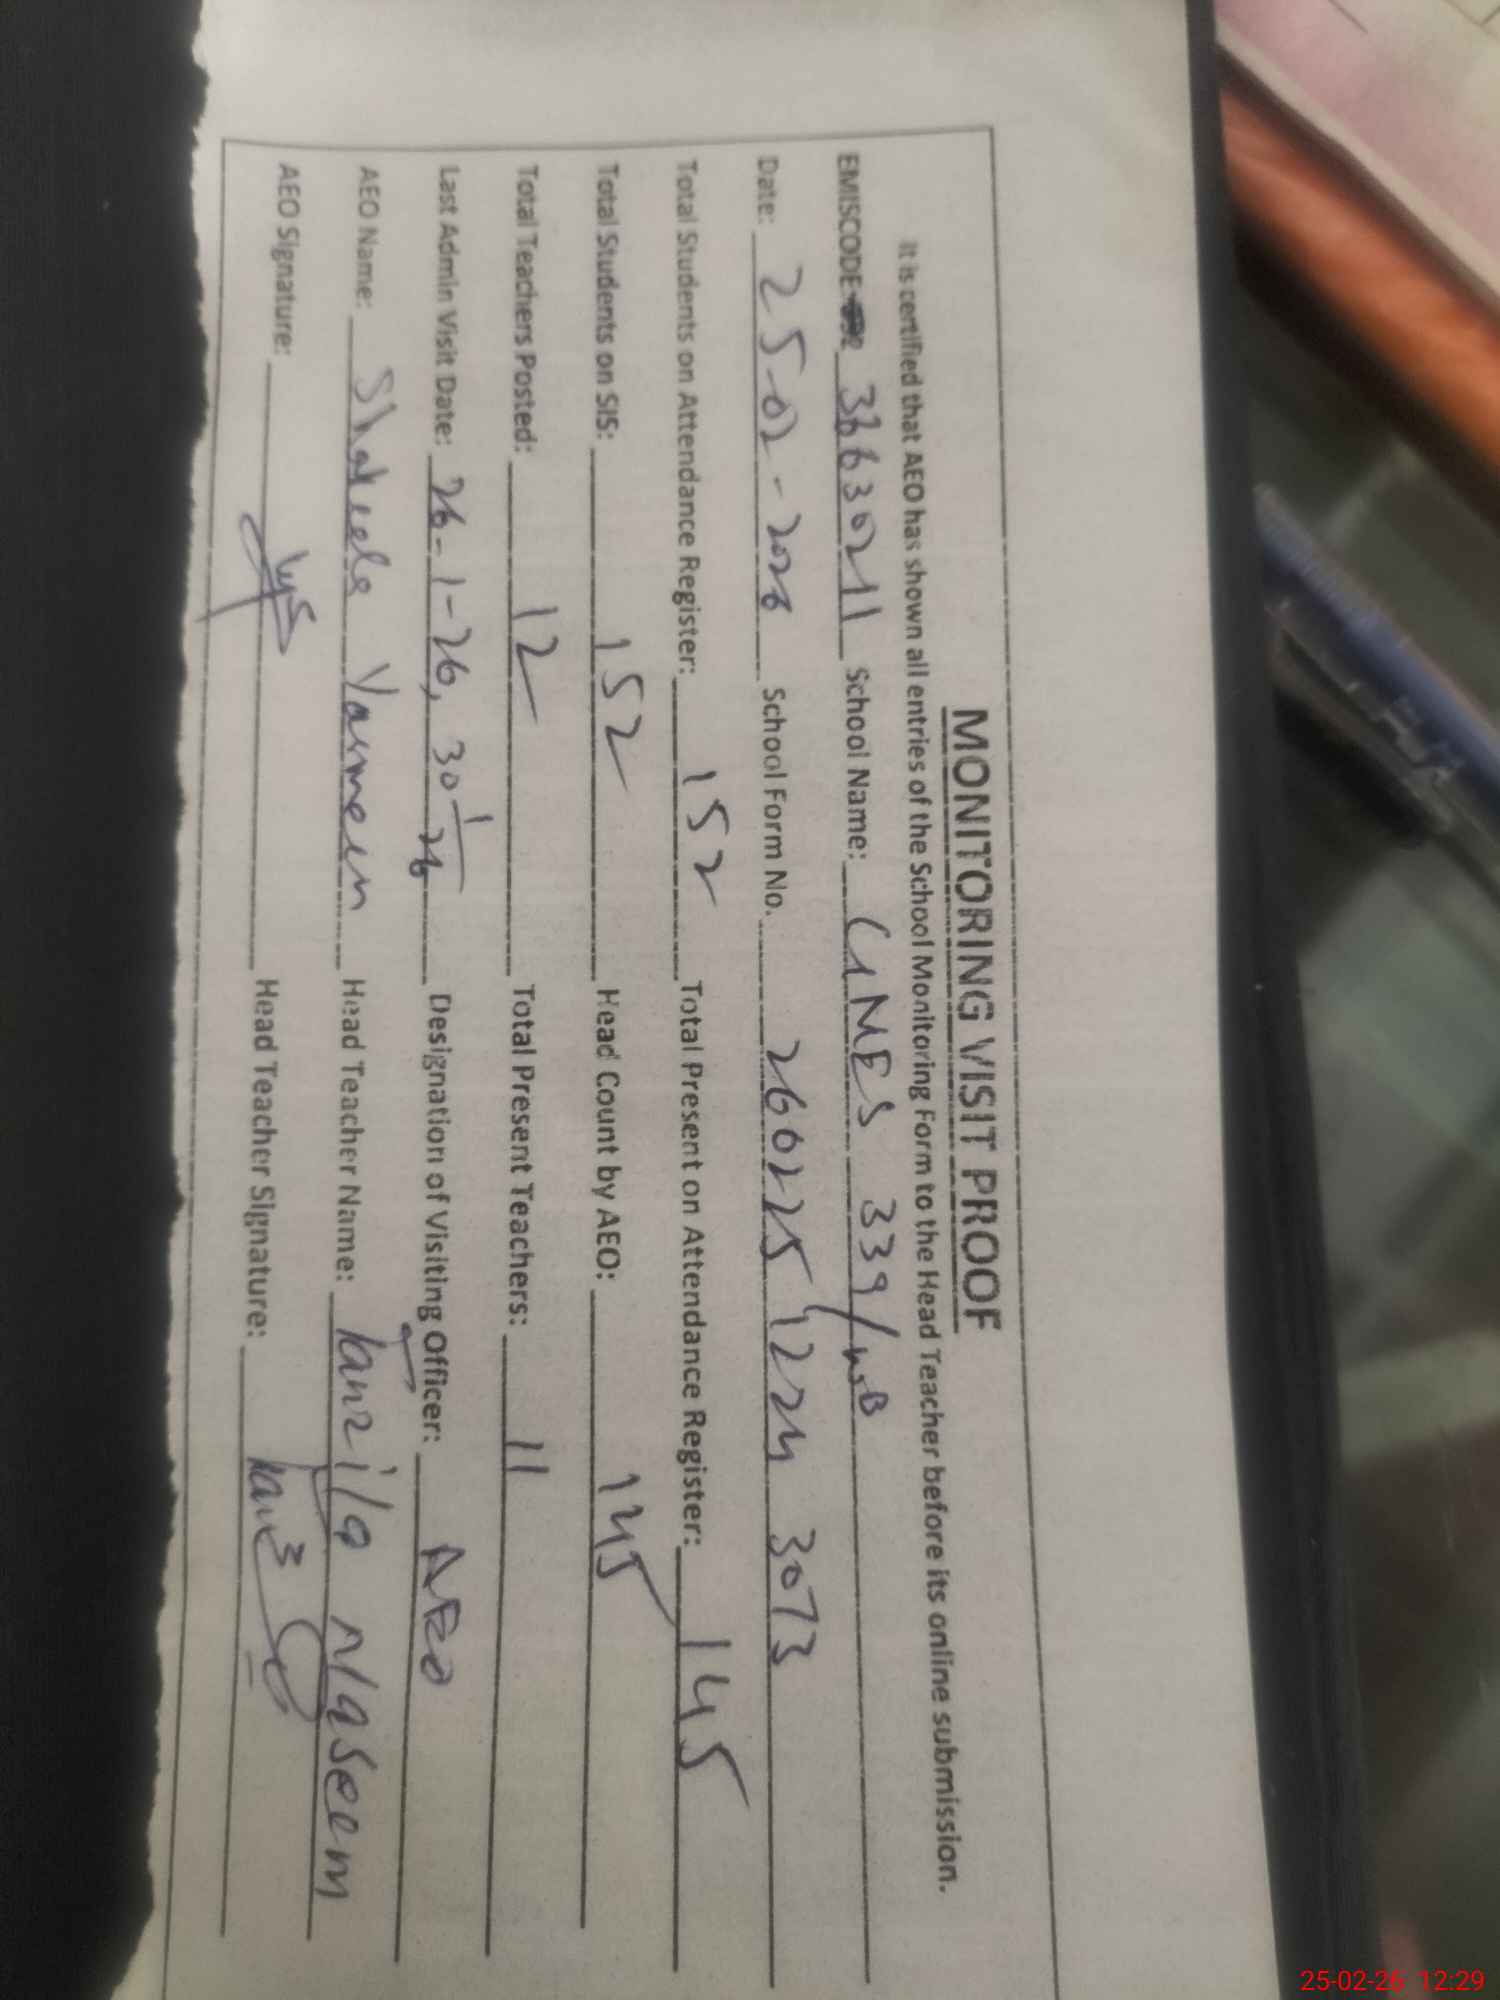 MONITORING VISIT PROOF
It is certified that AEO has shown all entries of the School Monitoring Form to the Head Teacher before its online submission.
EMISCODE 36630211 School Name: GMES 339/WB
Date: 25-02-2026 School Form No. 260225 1224 3073
Total Students on Attendance Register: 152 Total Present on Attendance Register: 145
Total Students on SIS: 152 Head Count by AEO: 145
Total Teachers Posted: 12 Total Present Teachers: 11
Last Admin Visit Date: 26-1-26, 30 1/26 Designation of Visiting Officer: AEO
AEO Name: Shakeela Yasmeen Head Teacher Name: Tanzila Naseem
AEO Signature: Head Teacher Signature:
25-02-26 12:29